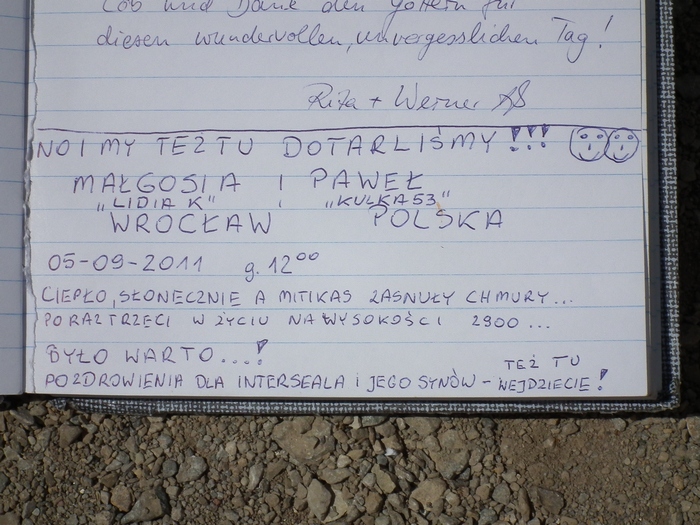 Lob und Dank den Göttern für
diesen wundervollen, unvergesslichen Tag!
Rita + Werner
NO I MY TEŻ TU DOTARLIŚMY!!!
MAŁGOSIA I PAWEŁ
„LIDIA K" „KULKA53"
WROCŁAW POLSKA
05-09-2011 g. 12⁰⁰
CIEPŁO, SŁONECZNIE A MITIKAS ZASNUŁY CHMURY...
PO RAZ TRZECI W ŻYCIU NA WYSOKOŚCI 2900...
BYŁO WARTO....!
TEŻ TU
POZDROWIENIA DLA INTERSEALA i JEGO SYNÓW - WEJDZIECIE!